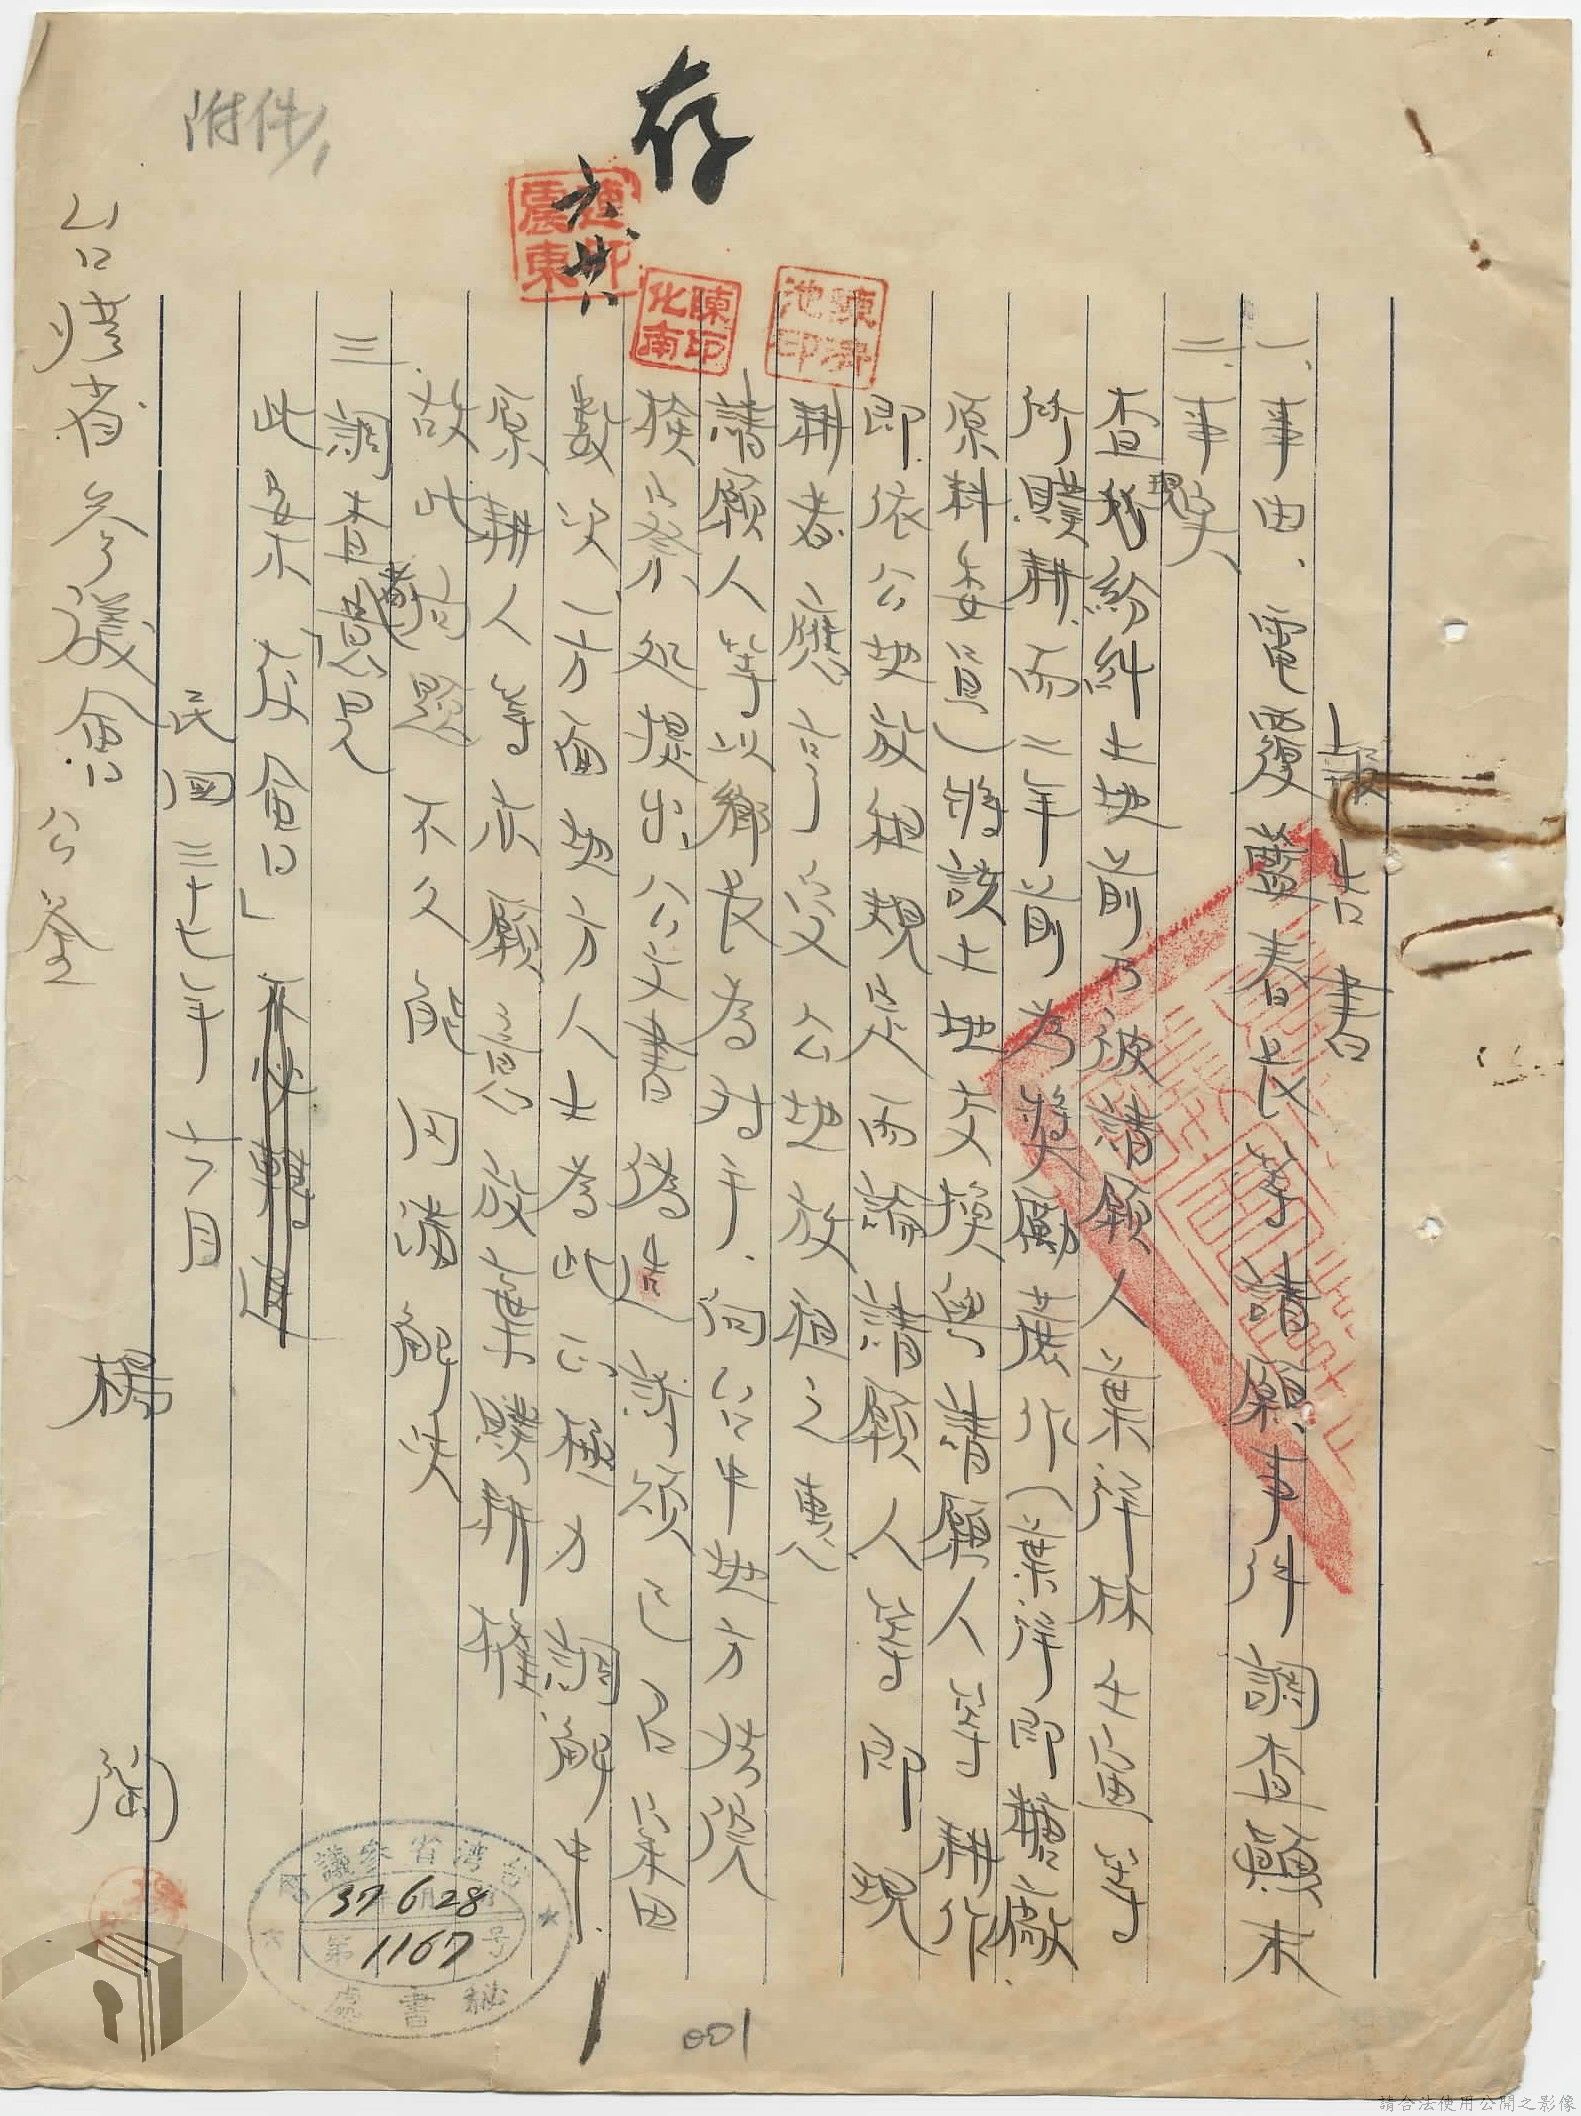 報告書
一、事由、電覆蕭春長等請願事件調查顛末
二、事実
查現紛糾土地前乃被請願人葉洋林生福等
所贌耕而二年前為獎勵蔗作(葉洋即糖廠
原料委員)將該土地交換與請願人等耕作
即依公地放租規定而論請願人等即現
耕者應可受公地放租之惠
請願人等以鄉長為対手向台中地方法院
檢察処提出公文書偽造等彼已召集
數次一方面地方人士為此亦極力調解中
原耕人等亦願部份放棄贌耕權
故此問題不久能円滿解決
三、調查意見
此案「存會」
民國三十七年六月
楊 蘭
台灣省參議會 公鑒
附件1
存
六 廿八
連震東印
陳化南印
台灣省參議會
37 6 28
第1167号
秘書處
001
請合法使用公開之影像